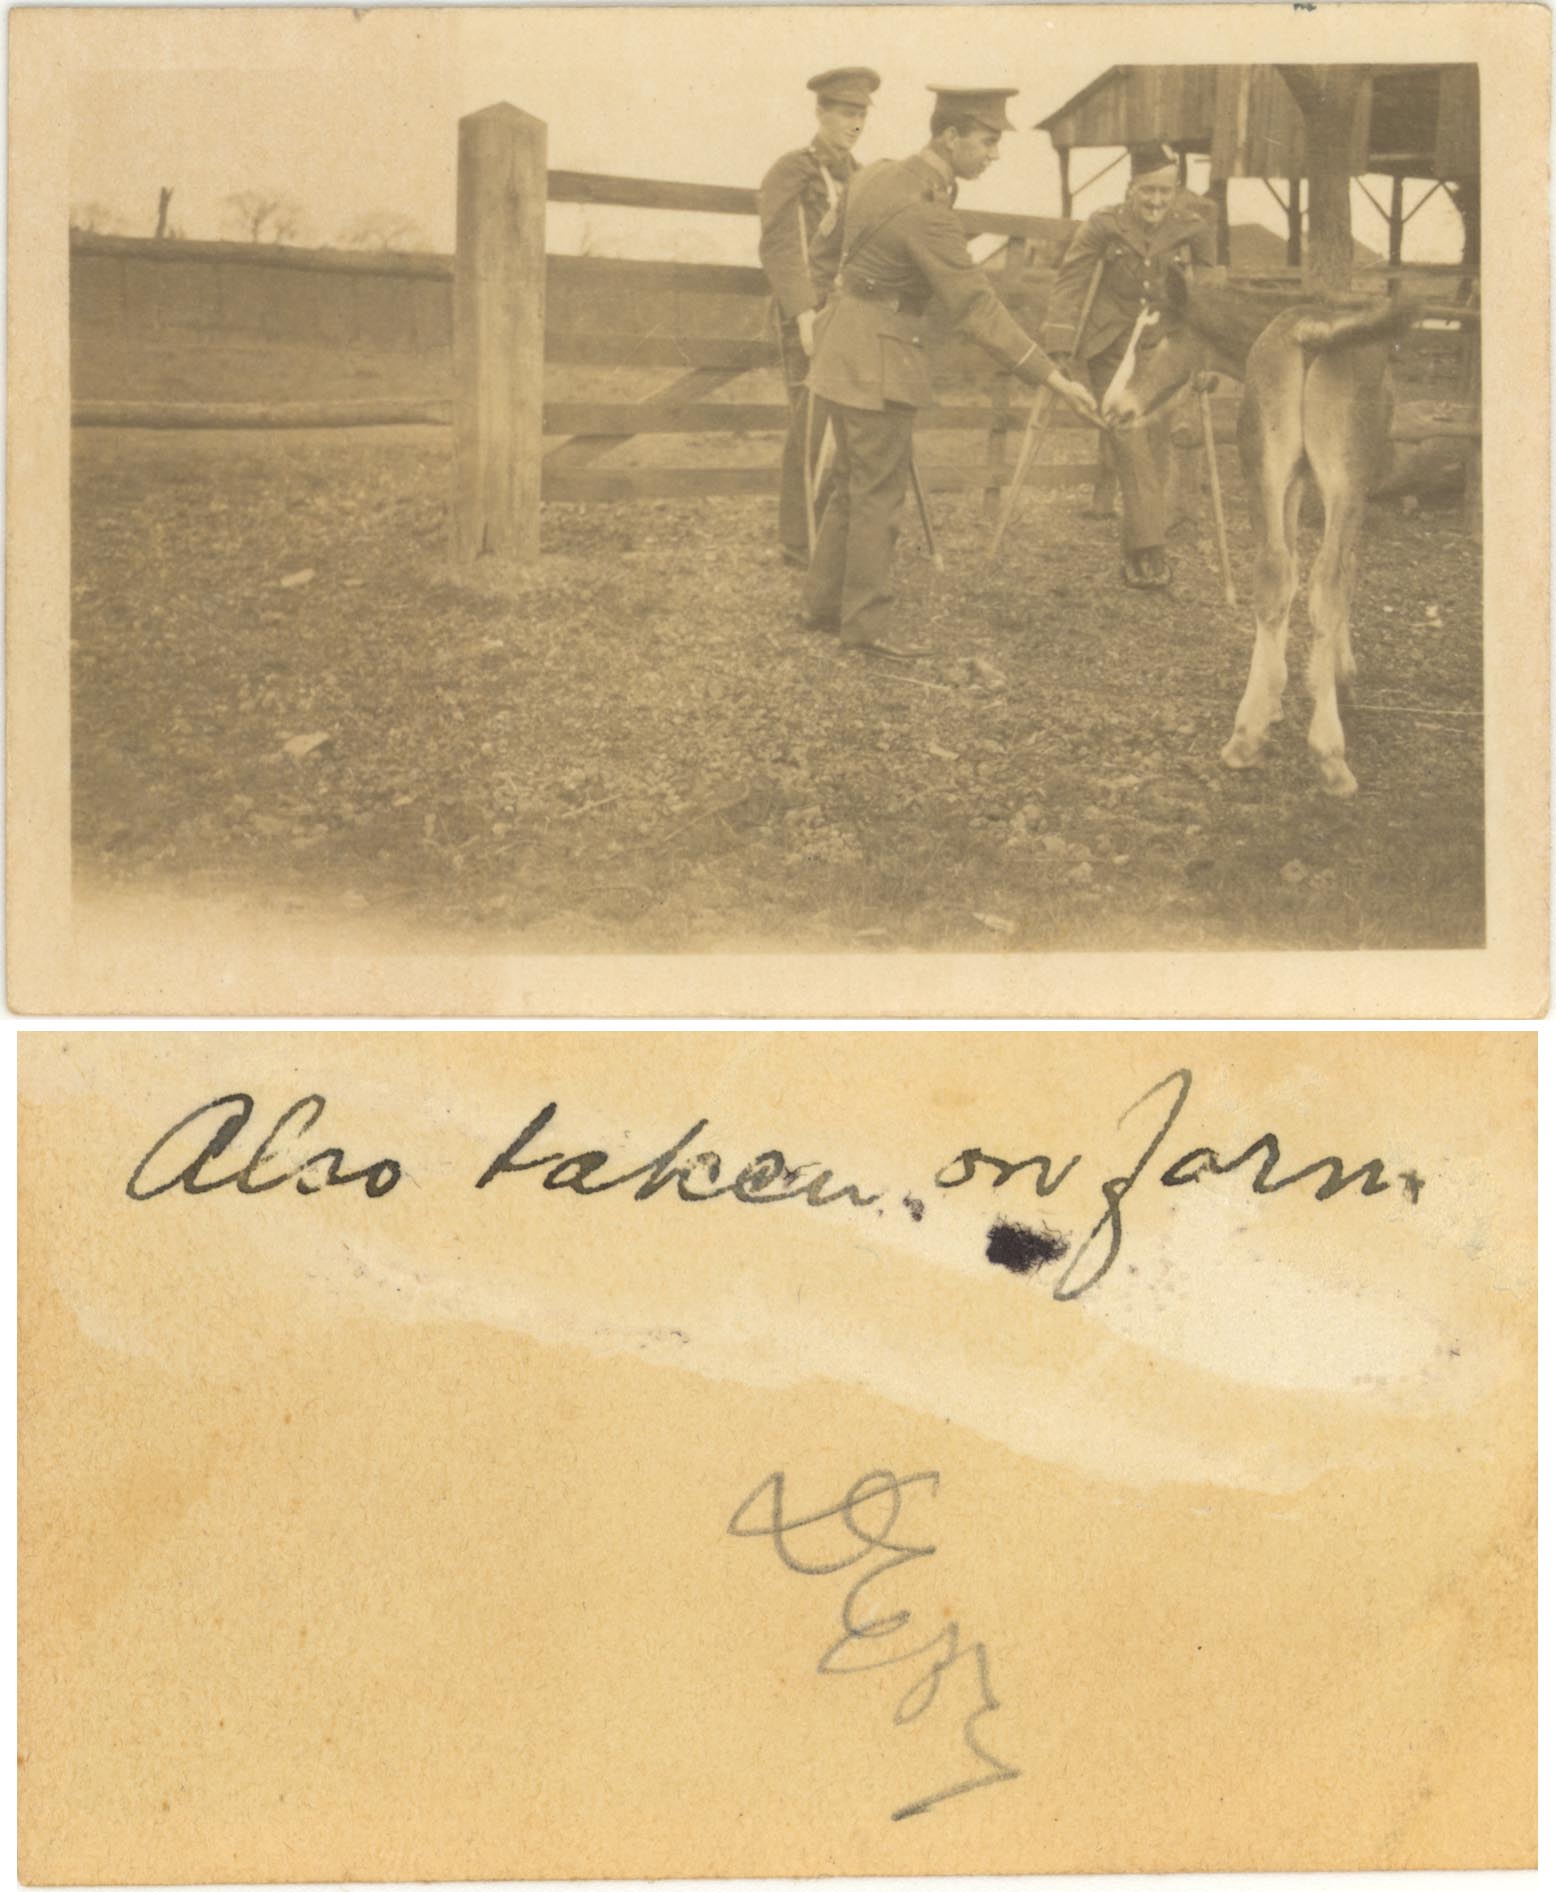 Also taken on farm.